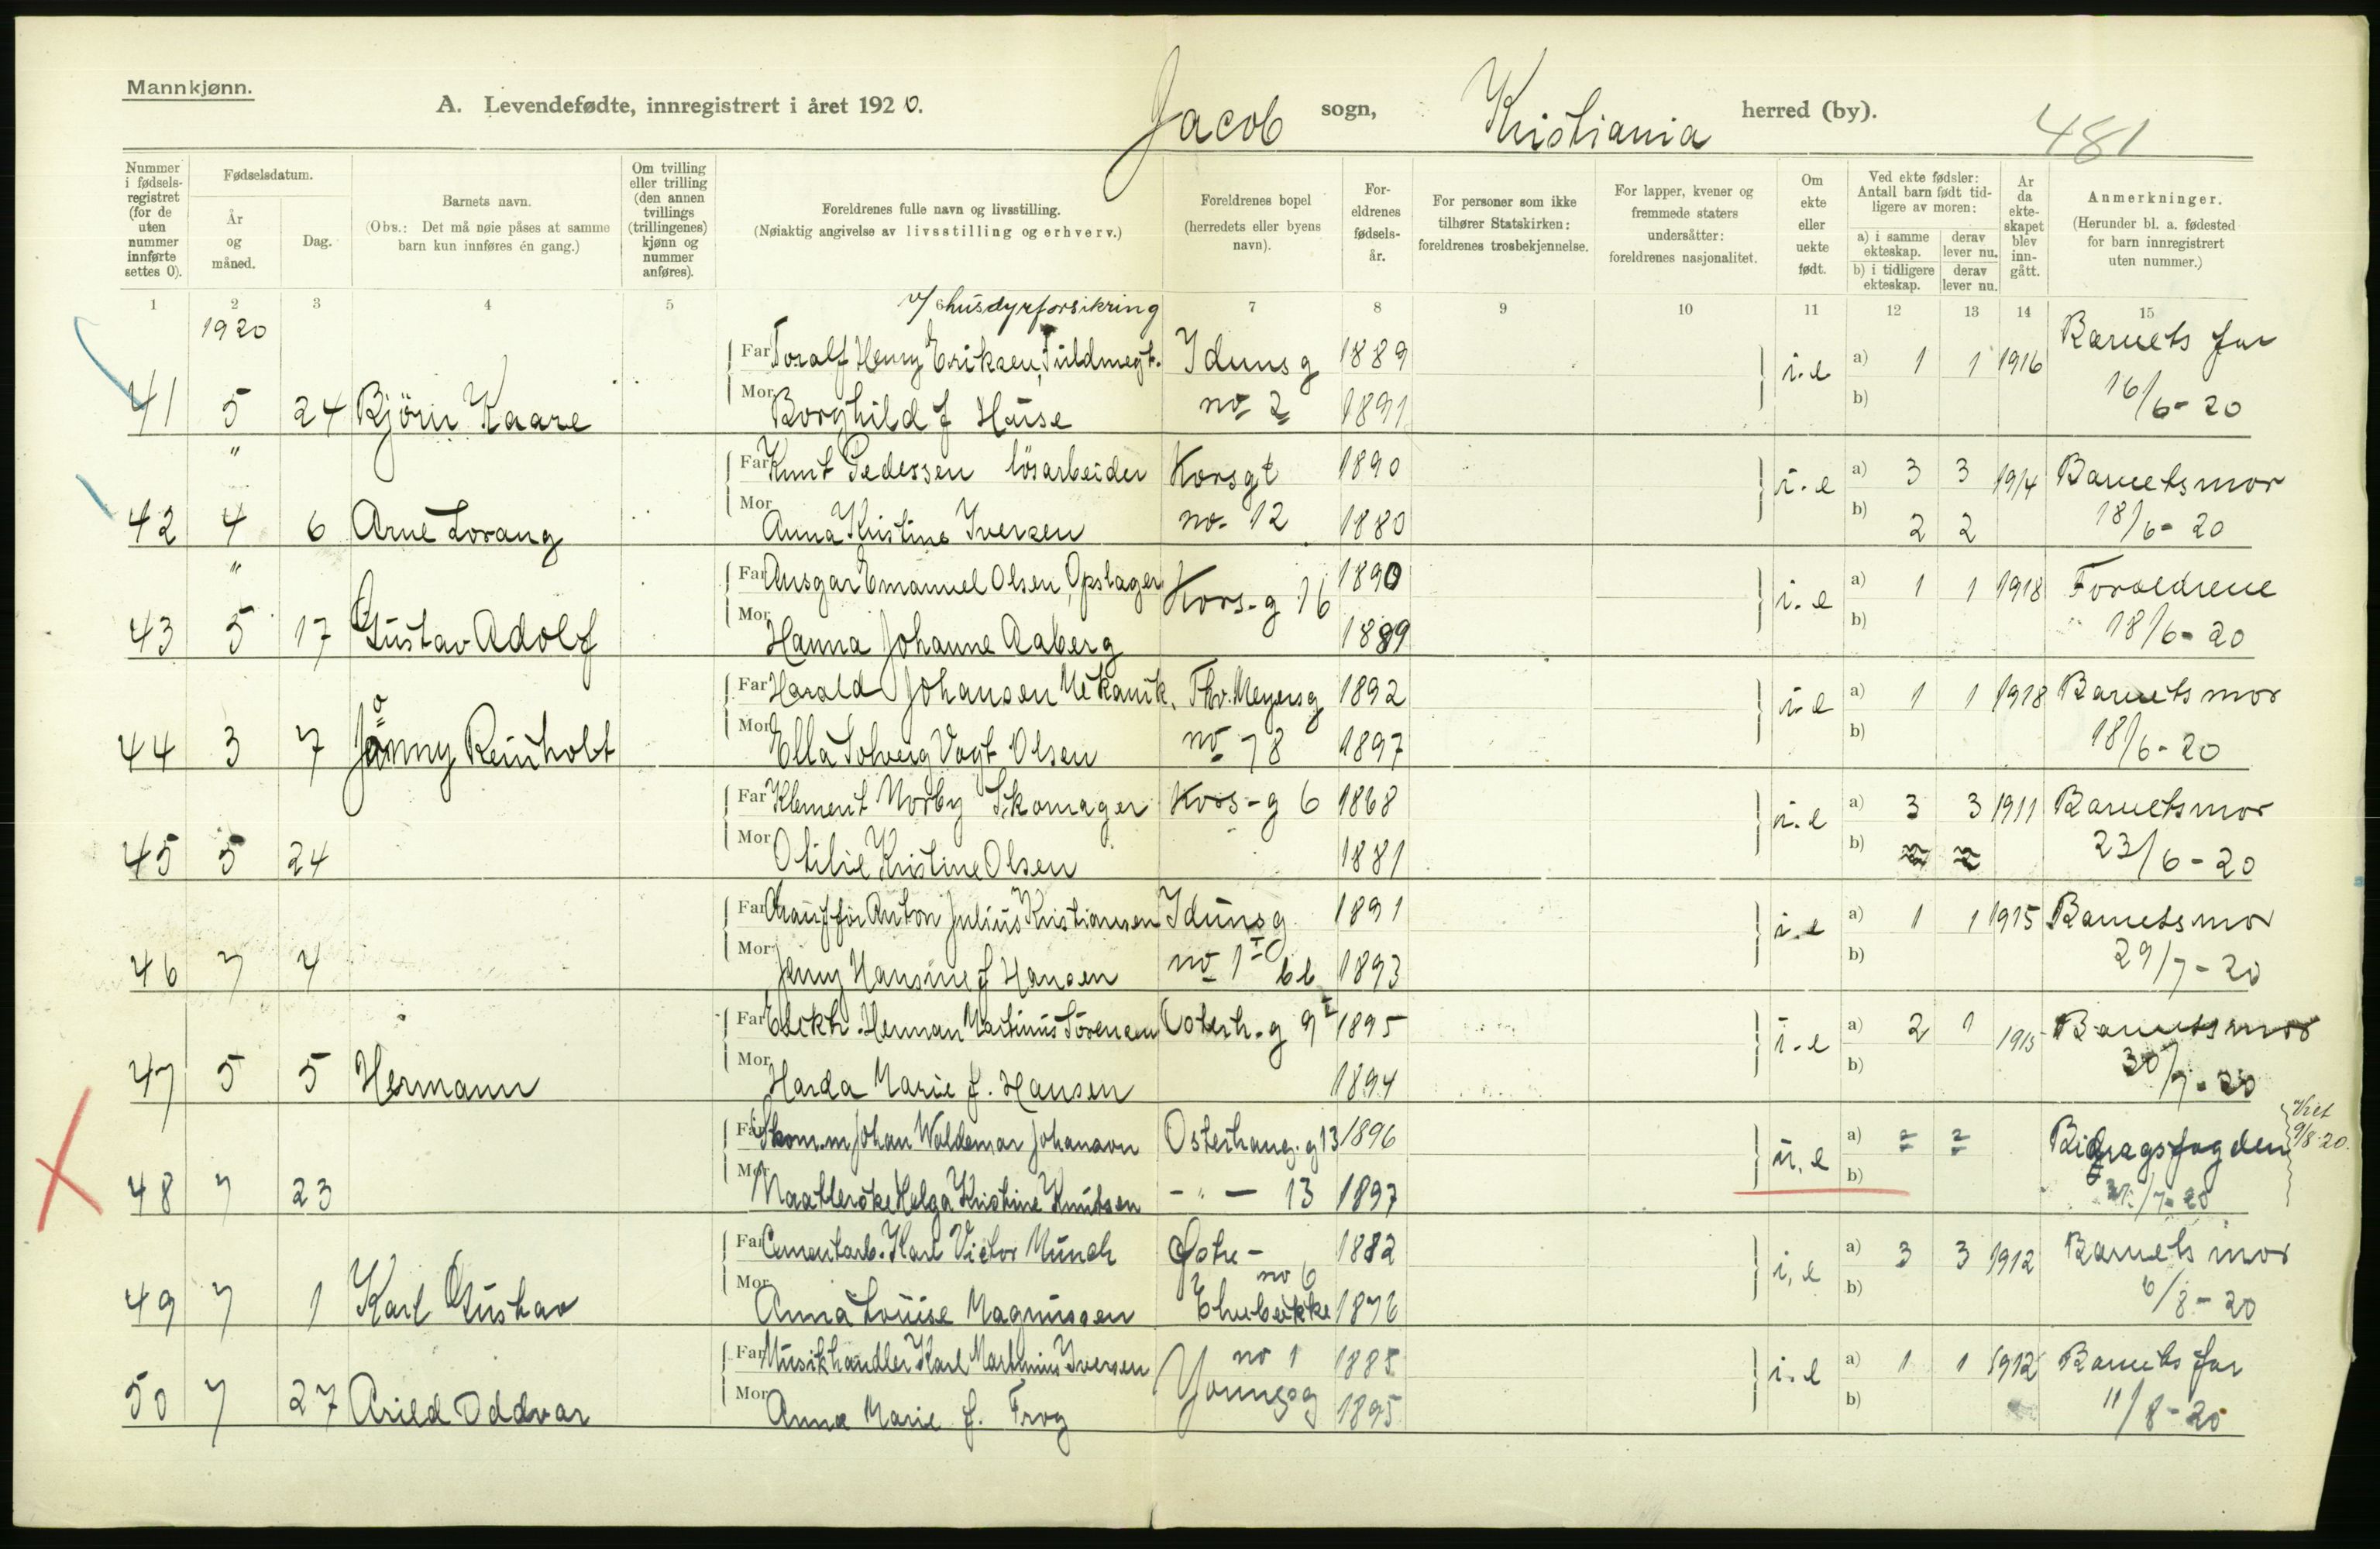 Mannkjønn.
A. Levendefødte, innregistrert i året 1920. Jacob sogn, Kristiania herred (by). 481
Nummer i fødsels-registret (for de uten nummer innførte settes 0).
Fødselsdatum.
År og måned.
Dag.
Barnets navn.
(Obs.: Det må nøie påses at samme barn kun innføres én gang.)
Om tvilling eller trilling (den annen tvillings (trillingenes) kjønn og nummer anføres).
Foreldrenes fulle navn og livsstilling.
(Nøiaktig angivelse av livsstilling og erhverv.)
Foreldrenes bopel (herredets eller byens navn).
For-eldrenes fødsels-år.
For personer som ikke tilhører Statskirken: foreldrenes trosbekjennelse.
For lapper, kvener og fremmede staters undersåtter: foreldrenes nasjonalitet.
Om ekte eller uekte født.
Ved ekte fødsler: Antall barn født tid-ligere av moren:
a) i samme ekteskap. derav lever nu.
b) i tidligere ekteskap. derav lever nu.
År da ekte-skapet blev inn-gått.
Anmerkninger.
(Herunder bl. a. fødested for barn innregistrert uten nummer.)
1 2 3 4 5 6 7 8 9 10 11 12 13 14 15
1920 v/ husdyrforsikring
Far Toralf Henry Eriksen, Fuldmegt. Idunsg 1889 i.e a) 1 1 1916 Barnets far
41 5 24 Bjørn Kaare Mor Borghild f Hause no 2 1891 b) 16/6-20
" Far Knut Pedersen løsarbeider Korsgt 1890 i.e a) 3 3 1914 Barnets mor
42 4 6 Arne Lorang Mor Anna Kristine Iversen no. 12 1880 b) 2 2 18/6-20
" Far Ansgar Emanuel Olsen, Opslager Kors-g 16 1890 i.e a) 1 1 1918 Foreldrene
43 5 17 Gustav Adolf Mor Hanna Johanne Aaberg 1899 b) 18/6-20
Far Harald Johansen Mekanik, Thv. Meyersg 1892 i.e a) 1 1 1918 Barnets mor
44 3 7 Jönny Reinholt Mor Ella Solveig Vogt Olsen no 78 1897 b) 18/6-20
Far Klement Norby Skomager Kors-g 6 1868 i.e a) 3 3 1911 Barnets mor
45 5 24 Mor Otilie Kristine Olsen 1881 b) 23/6-20
Far Chauffør Anton Julius Kristiansen Idunsg 1891 i.e a) 1 1 1915 Barnets mor
46 7 4 Mor Jenny Hansine f Hansen no 1 1893 b) 29/7-20
Far Elektr. Herman Martinius Sørensen Osterh.g 9 1895 i.e a) 2 1 1915 Barnets mor
47 5 5 Hermann Mor Harda Marie f. Hansen 1894 b) 30/7-20
Far Skom.m Johan Waldemar Johanson Osterhaug.g 13 1896 u.e a) Bidragsfogden 9/8-20.
48 7 23 Mor Helga Kristine Knutsen - " - 13 1897 b) /7-20
Far Cementarb. Karl Victor Munch Götre- no 6 1882 i.e a) 3 3 1912 Barnets mor
49 7 1 Karl Gustav Mor Anna Louise Magnussen Ekebække 1876 b) 6/8-20
Far Musikhandler Karl Marthinius Iversen no 1 1888 i.e a) 1 1 1912 Barnets far
50 7 27 Arild Oddvar Mor Anna Marie f. Frog Youngsg 1895 b) 11/8-20